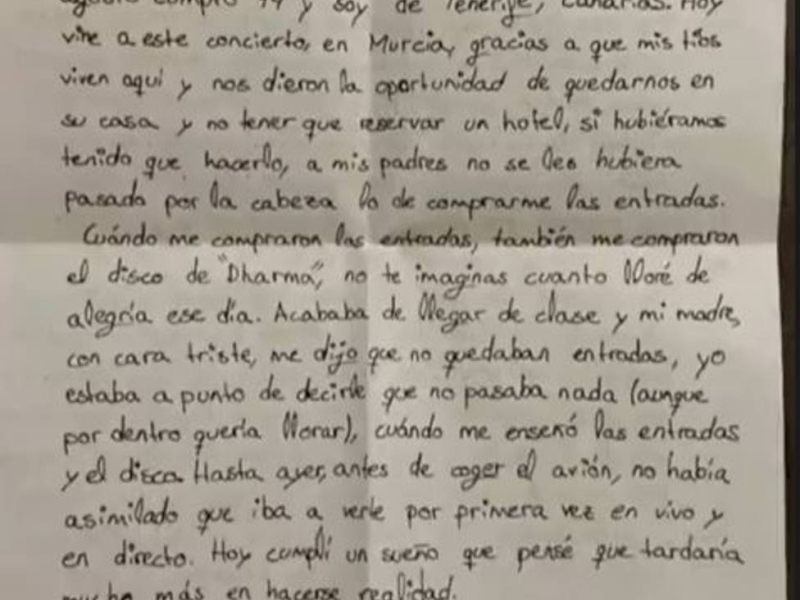 agosto cumplo 14 y soy de Tenerife, Canarias. Hoy
vine a este concierto, en Murcia, gracias a que mis tíos
viven aquí y nos dieron la oportunidad de quedarnos en
su casa y no tener que reservar un hotel, si hubiéramos
tenido que hacerlo, a mis padres no se les hubiera
pasado por la cabeza lo de comprarme las entradas.
Cuándo me compraron las entradas, también me compraron
el disco de "Dharma", no te imaginas cuanto lloré de
alegría ese día. Acababa de llegar de clase y mi madre,
con cara triste, me dijo que no quedaban entradas, yo
estaba a punto de decirle que no pasaba nada (aunque
por dentro quería llorar), cuándo me enseñó las entradas
y el disco. Hasta ayer, antes de coger el avión, no había
asimilado que iba a verte por primera vez en vivo y
en directo. Hoy cumplí un sueño que pensé que tardaría
mucho más en hacerse realidad.